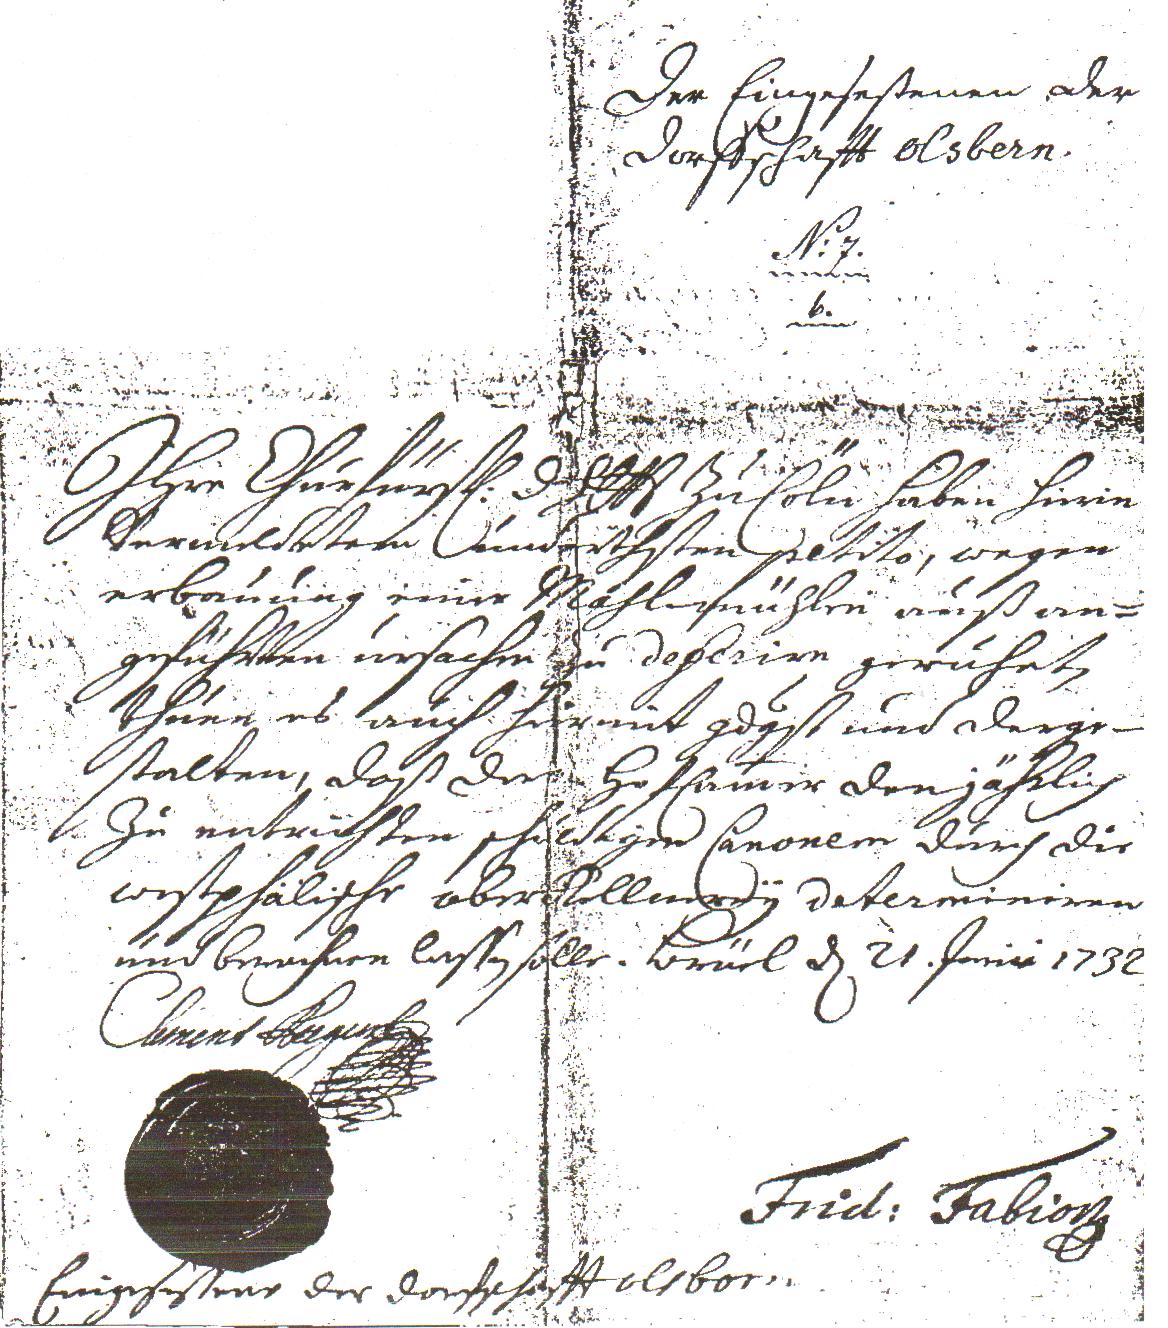 Der Eingesestenen der
Dorffschafft Olsbern.
N: 7.
6.
Ihre Churfürstl: zu Cöln haben hierin
Vermeldetem petito, wegen
erbauung einer Mahlmühlen auß an=
geführten ursachen zu deferiren geruhet,
thuen es auch hiermit gdgst und derge-
stalten, daß der HofCamer den jährlich
Zu entrichten schuldigen Canonem durch die
westphälische oberKellnerey determiniren
und berechnen lassen solle. Brüel d. 21. Junii 1732
Clement August
Frid: Fabion
Eingesessene der dorffschafft olsborn